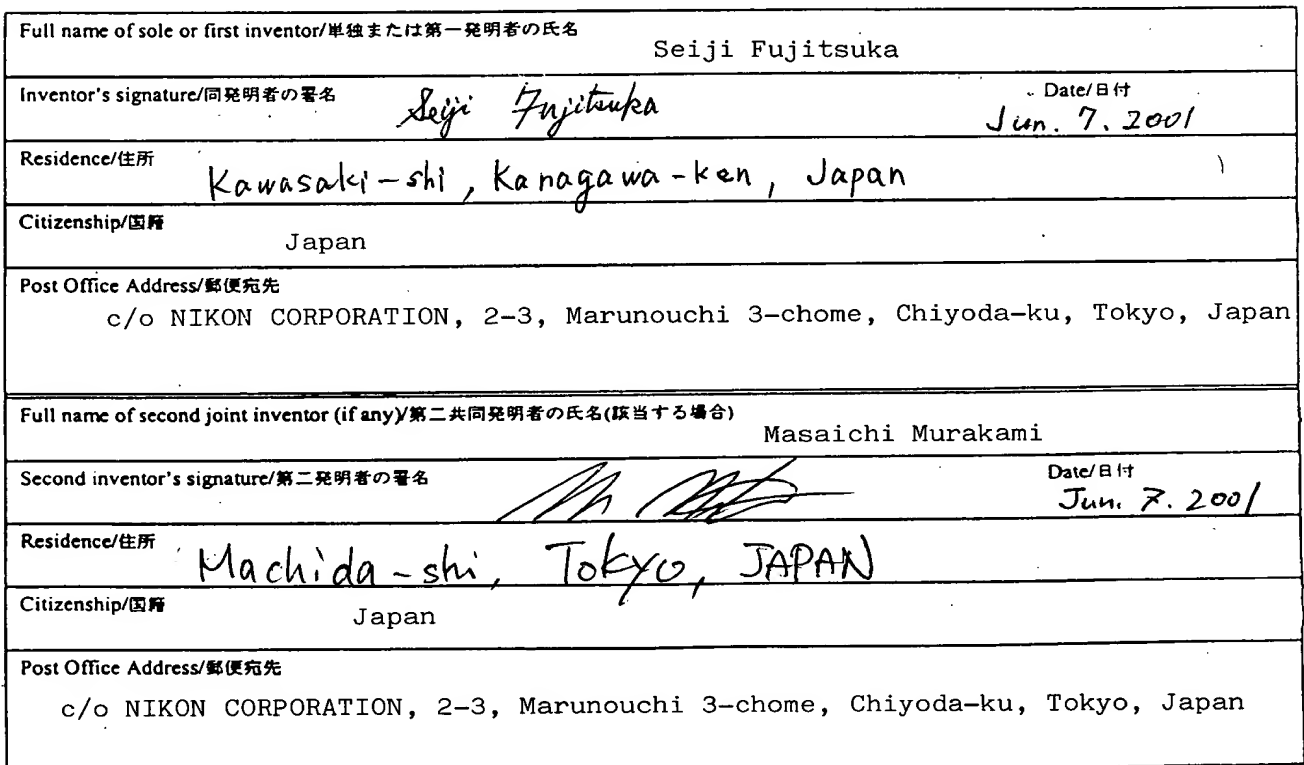 Full name of sole or first inventor/単独または第一発明者の氏名
Seiji Fujitsuka
Inventor's signature/同発明者の署名 Seiji Fujitsuka Date/日付
Jun. 7. 2001
Residence/住所
Kawasaki-shi, Kanagawa-ken, Japan
Citizenship/国籍
Japan
Post Office Address/郵便宛先
c/o NIKON CORPORATION, 2-3, Marunouchi 3-chome, Chiyoda-ku, Tokyo, Japan
Full name of second joint inventor (if any)/第二共同発明者の氏名(該当する場合)
Masaichi Murakami
Second inventor's signature/第二発明者の署名 Date/日付
Jun. 7. 2001
Residence/住所
Machida-shi, Tokyo, JAPAN
Citizenship/国籍
Japan
Post Office Address/郵便宛先
c/o NIKON CORPORATION, 2-3, Marunouchi 3-chome, Chiyoda-ku, Tokyo, Japan